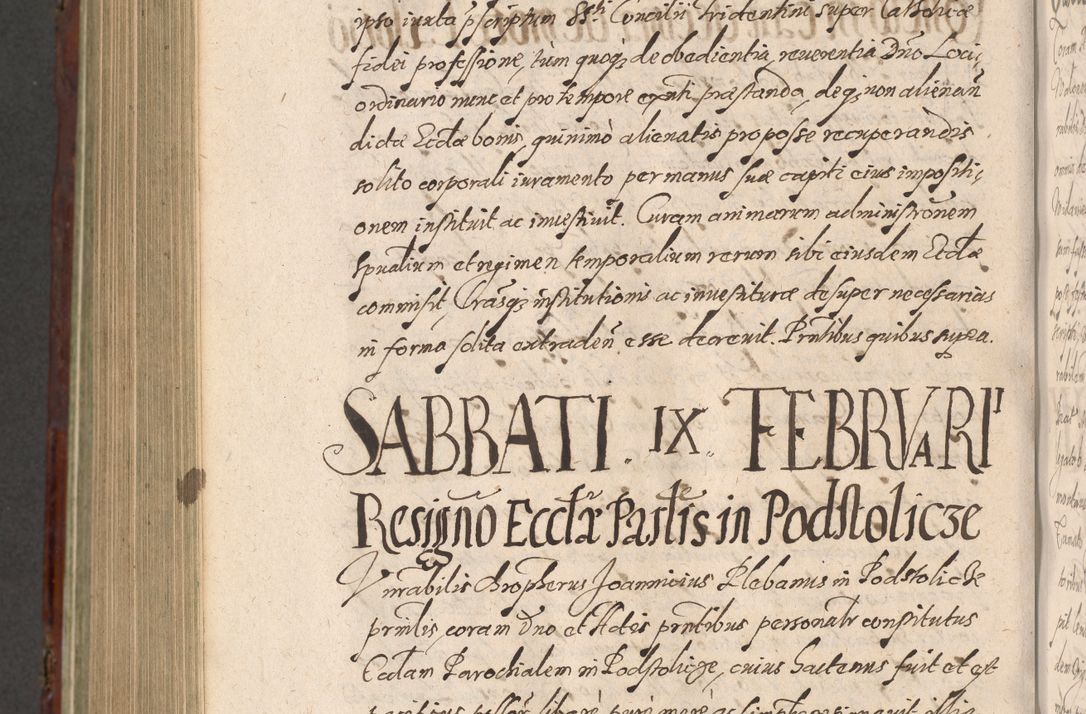 ipso iuxta pscriptum SSti Concilii Tridentini super Catholicæ
fidei professione, tùm quoq; de obedientia, reuerentia Dño Loci,
ordinario nunc et pro tempore exnti præstanda, deq; non alienań
dictæ Ecclæ bonis, quinimò alienatis pro posse recuperandis
solito corporali iuramento per manus suæ capiti eius impositi,
onem instituit ac inuestiuit. Curam animarum administrōnem
spualium et regimen temporalium rerum sibi eiusdem Ecclæ
commisit, Lrasq; institutionis ac inuestituræ desuper necessarias
in forma solita extradeń esse decreuit. Prntibus quibus supra.
SABBATI. IX. FEBRVARII
Resigño Ecclæ Parlis in Podstolicze
Vnrabilis Chropherus Joannicius Plebanus in Podstolicze
prinlis, coram Dno et Actis prntibus personalr constitutus
Ecclam Parochialem in Podstolicze, cuius hactenus fuit et est
libere, pure mere ac simpliciter resignauit